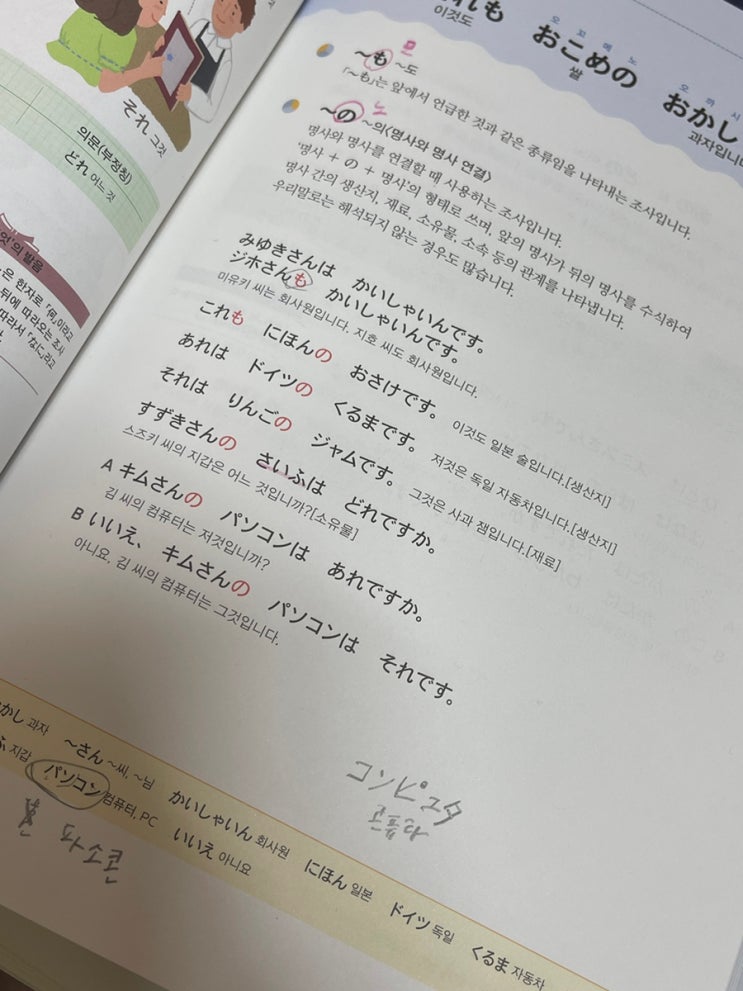 それ 그것
의문(부정칭)
どれ 어느 것
은 한자로 「何」이라고
뒤에 따라오는 조사
따라서 「なに」라고
れも おこめの おかし
이것도 쌀 과자입니
오 꼬 메 노 오 까 시
~も ~도
모
「~も」는 앞에서 언급한 것과 같은 종류임을 나타내는 조사입니다.
~の ~의<명사와 명사 연결>
노
명사와 명사를 연결할 때 사용하는 조사입니다.
'명사 + の + 명사'의 형태로 쓰며, 앞의 명사가 뒤의 명사를 수식하여
명사 간의 생산지, 재료, 소유물, 소속 등의 관계를 나타냅니다.
우리말로는 해석되지 않는 경우도 많습니다.
みゆきさんは かいしゃいんです。
ジホさんも かいしゃいんです。
미유키 씨는 회사원입니다. 지호 씨도 회사원입니다.
これも にほんの おさけです。 이것도 일본 술입니다.[생산지]
あれは ドイツの くるまです。 저것은 독일 자동차입니다.[생산지]
それは りんごの ジャムです。 그것은 사과 잼입니다.[재료]
すずきさんの さいふは どれですか。
스즈키 씨의 지갑은 어느 것입니까?[소유물]
A キムさんの パソコンは あれですか。
김 씨의 컴퓨터는 저것입니까?
B いいえ、 キムさんの パソコンは それです。
아니요, 김 씨의 컴퓨터는 그것입니다.
コンピュタ
콤퓨타
かし 과자 ~さん ~씨, ~님 かいしゃいん 회사원 にほん 일본 ドイツ 독일 くるま 자동차
ふ 지갑 パソコン 컴퓨터, PC いいえ 아니요
파소콘